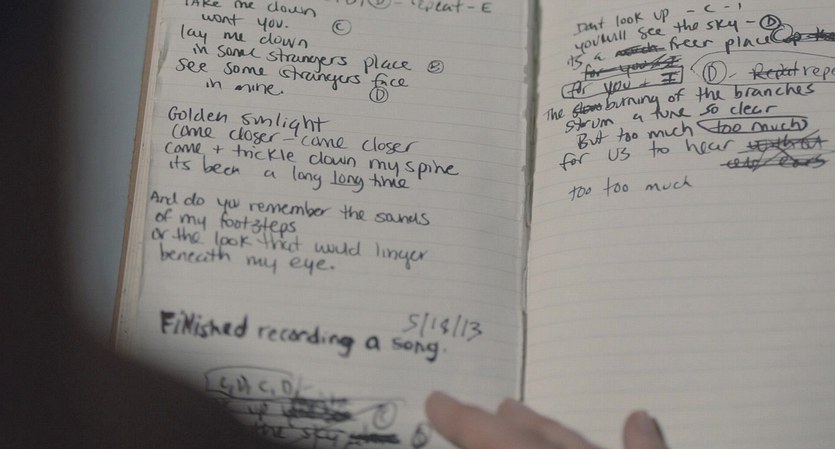 Take me down
want you. C
lay me down
in some strangers place
see some strangers face
in mine. D
Golden sunlight
come closer - come closer
come + trickle down my spine
its been a long long time
And do you remember the sands
of my footsteps
or the look that would linger
beneath my eye.
5/18/13
Finished recording a song.
Dont look up - C -
you will see the sky - D
its a freer place
for you + I D - repe
The burning of the branches
strum a tune so clear
But too much too much
for us to hear
too too much